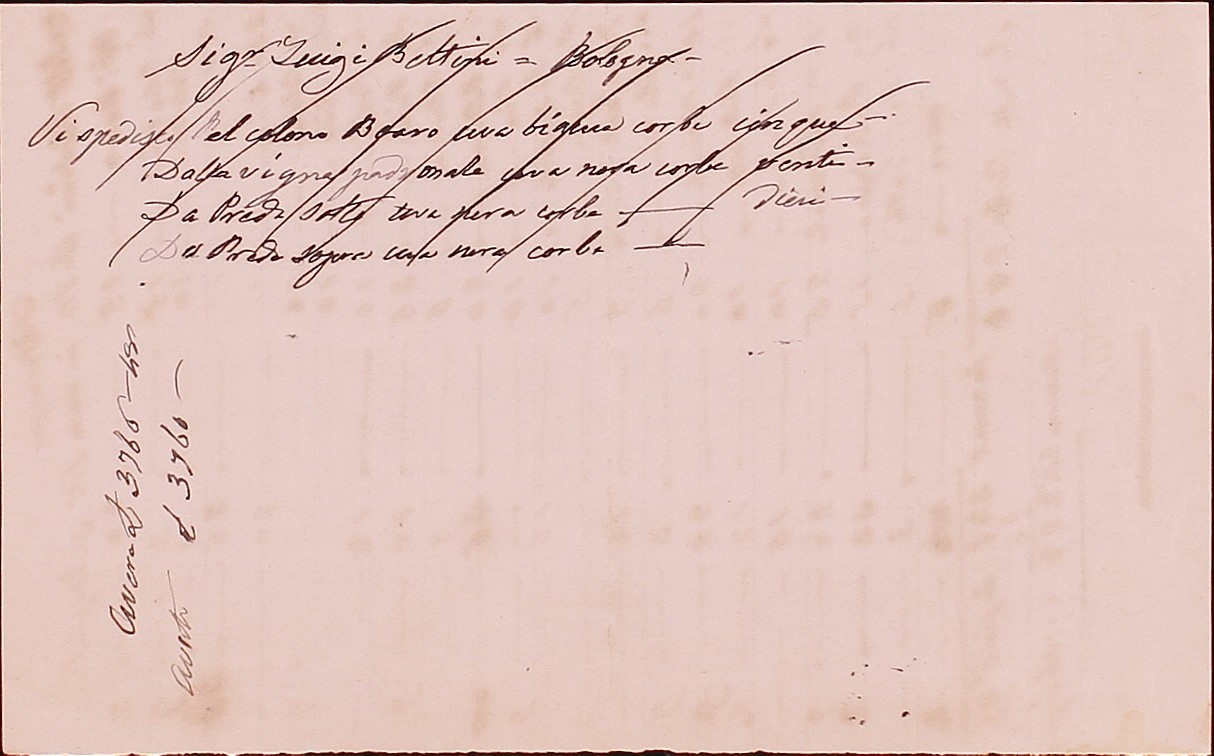 Sigr Luigi Bettini = Bologna -
Vi spedisco Pel colono Boaro uva bianca corbe cinque -
Dalla vigna padronale uva nera corbe venti -
Da Preda sotto uva nera corbe — dieci -
Da Preda sopra uva nera corbe —
Avere £ 3765-45
Avuti £ 3760 -